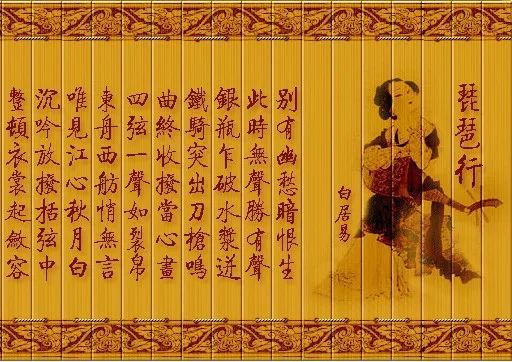 琵琶行
白居易
別有幽愁暗恨生
此時無聲勝有聲
銀瓶乍破水漿迸
鐵騎突出刀槍鳴
曲終收撥當心畫
四弦一聲如裂帛
東舟西舫悄無言
唯見江心秋月白
沉吟放撥括弦中
整頓衣裳起斂容